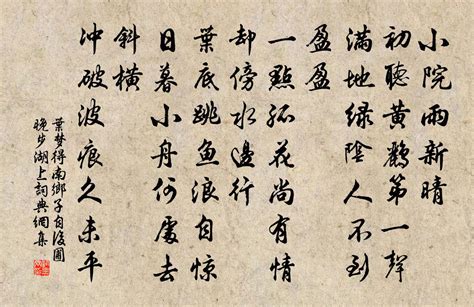 小院雨新晴
初聽黃鸝第一聲
滿地綠陰人不到
盈盈
一點孤花尚有情
却傍水邊行
葉底跳魚浪自惊
日暮小舟何處去
斜橫
冲破波痕久未平
葉梦得南鄉子自後圃
晚步湖上詞典網集